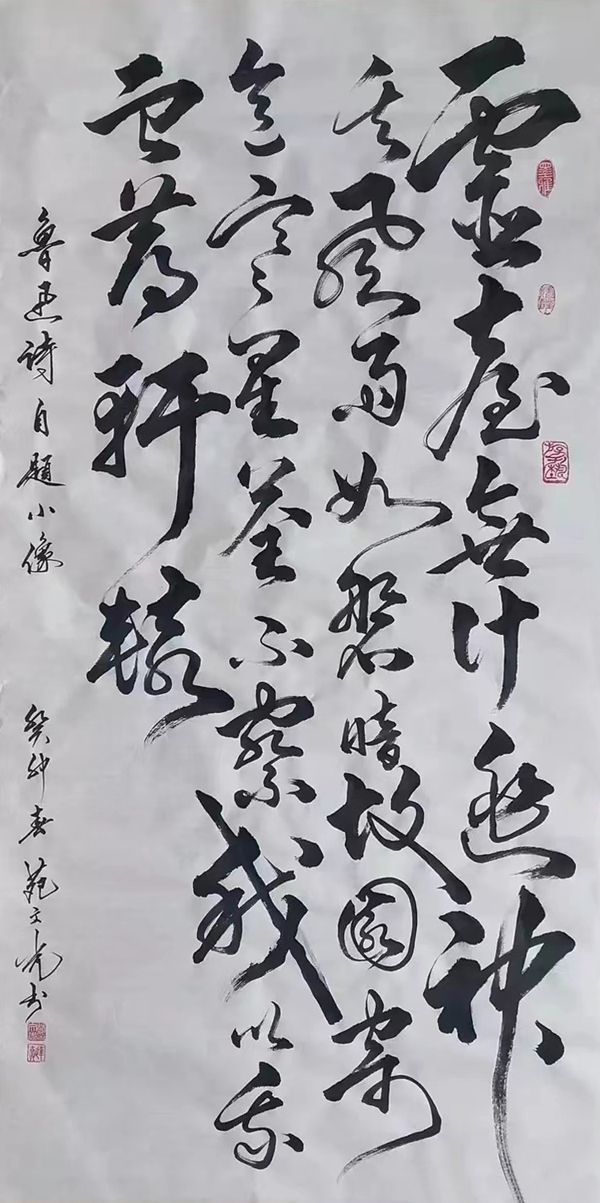 靈臺無計逃神
矢風雨如磐暗故園寄
意寒星荃不察我以我
血薦軒轅
魯迅詩自題小像
癸卯春苑文光书